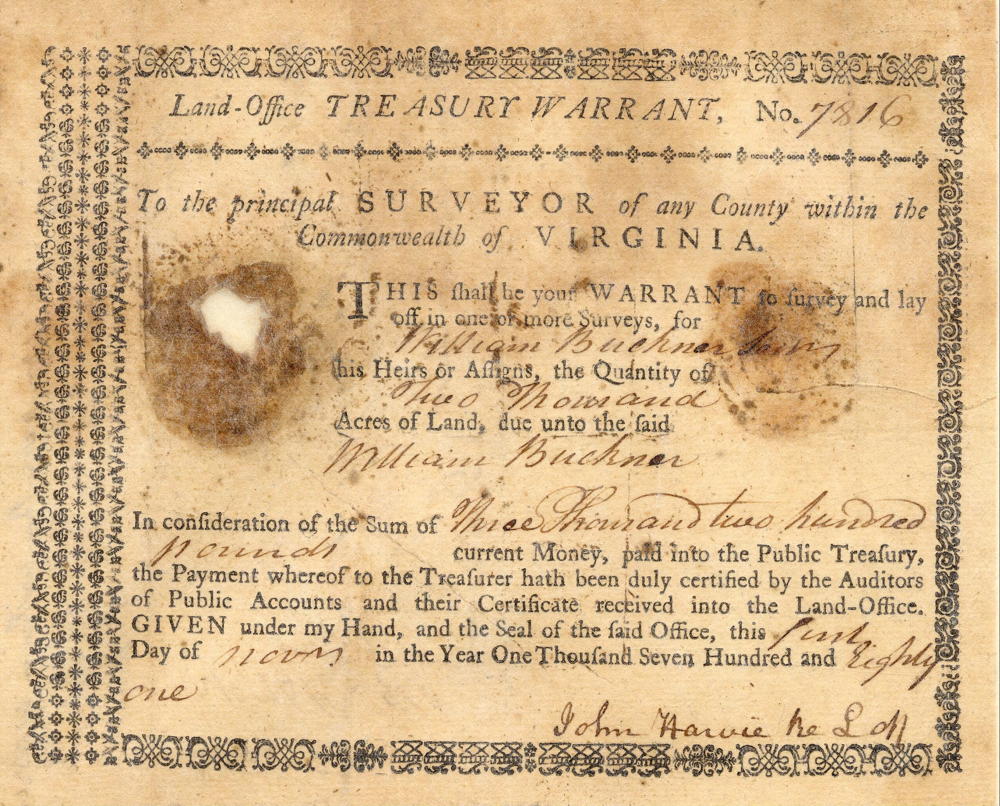 Land-Office TREASURY WARRANT, No. 7816
To the principal SURVEYOR of any County within the
Commonwealth of VIRGINIA.
THIS ſhall be your WARRANT to ſurvey and lay
off in one or more Surveys, for
William Buckner
his Heirs or Aſſigns, the Quantity of
Two Thousand
Acres of Land, due unto the ſaid
William Buckner
In conſideration of the Sum of Three Thousand two hundred
pounds current Money, paid into the Public Treaſury,
the Payment whereof to the Treaſurer hath been duly certified by the Auditors
of Public Accounts and their Certificate received into the Land-Office.
GIVEN under my Hand, and the Seal of the ſaid Office, this first
Day of novr in the Year One Thouſand Seven Hundred and Eighty
one
John Harvie Re L off